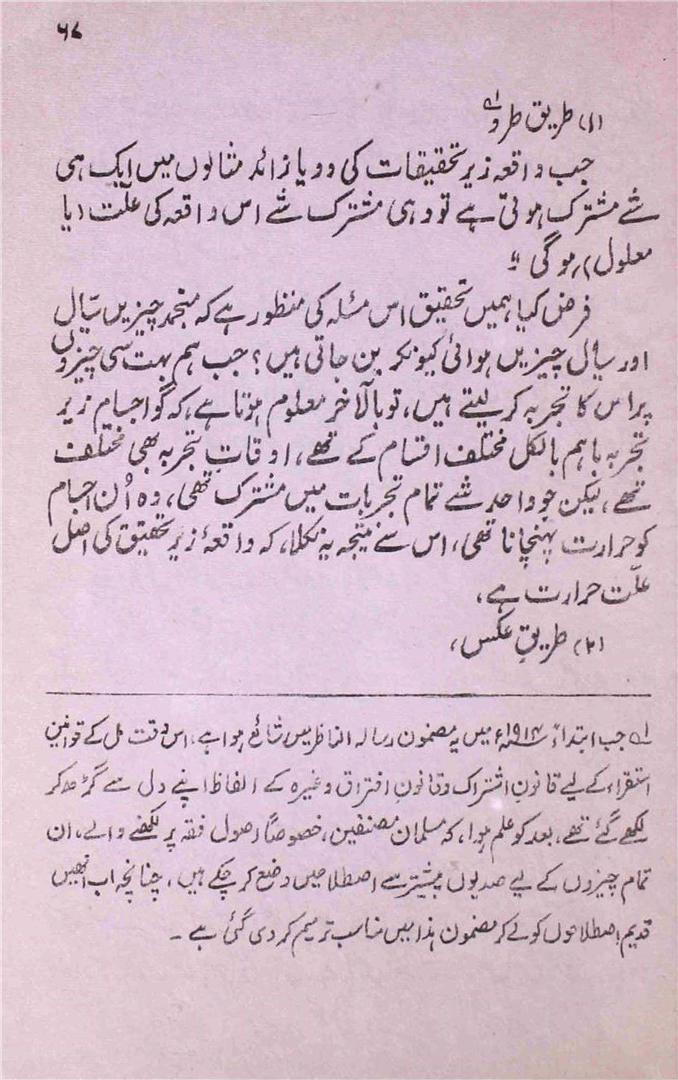 ۶۷
(۱) طریق طرد ؎۱
جب واقعہ زیر تحقیقات کی دو یا زائد مثالوں میں ایک ہی
شے مشترک ہوتی ہے تو وہی مشترک شے اس واقعہ کی علّت (یا
معلول) ہوگی "
فرض کیا ہمیں تحقیق اس مسئلہ کی منظور ہے کہ منجمد چیزیں سیّال
اور سیّال چیزیں ہوائی کیونکر بن جاتی ہیں؟ جب ہم بہت سی چیزوں
پر اس کا تجربہ کر لیتے ہیں، تو بالآخر معلوم ہوتا ہے، کہ گو اجسام زیر
تجربہ باہم بالکل مختلف اقسام کے تھے، اوقاتِ تجربہ بھی مختلف
تھے، لیکن جو واحد شے تمام تجربات میں مشترک تھی، وہ اُن اجسام
کو حرارت پہنچانا تھی، اس سے نتیجہ یہ نکلا، کہ واقعۂ زیر تحقیق کی اصل
علّت حرارت ہے،
(۲) طریقِ عکس،
؎۱ جب ابتداءً ۱۹۱۴ء میں یہ مضمون رسالہ الناظر میں شائع ہوا ہے، اس وقت مل کے قوانین
استقراء کے لیے قانونِ اشتراک و قانونِ افتراق وغیرہ کے الفاظ اپنے دل سے گڑھ کر
لکھے گئے تھے، بعد کو علم ہوا، کہ مسلمان مصنفین، خصوصاً اصول فقہ پر لکھنے والے، ان
تمام چیزوں کے لیے صدیوں پیشتر سے اصطلاحیں وضع کر چکے ہیں، چنانچہ اب انھیں
قدیم اصطلاحوں کو لے کر مضمون ہذا میں مناسب ترمیم کر دی گئی ہے ۔